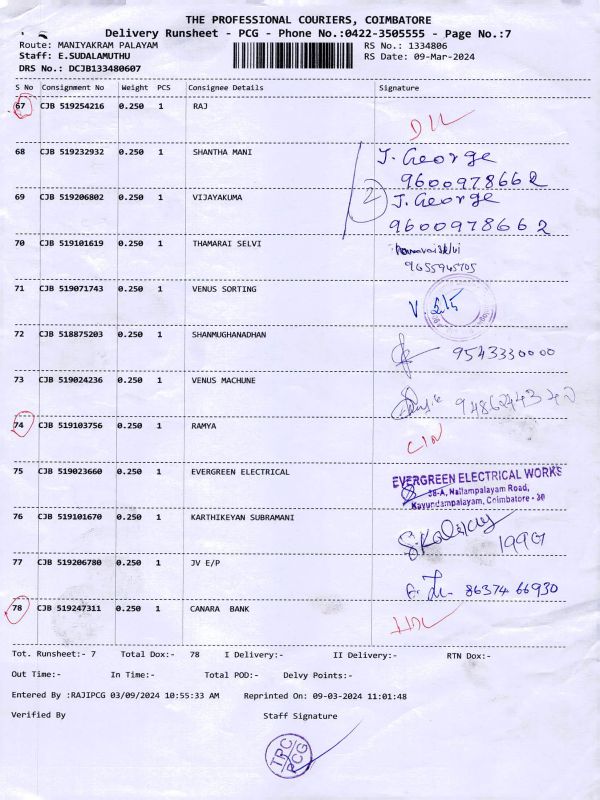 THE PROFESSIONAL COURIERS, COIMBATORE
Delivery Runsheet - PCG - Phone No.:0422-3505555 - Page No.:7
Route: MANIYAKRAM PALAYAM RS No.: 1334806
Staff: E.SUDALAMUTHU RS Date: 09-Mar-2024
DRS No.: DCJB133480607
S No Consignment No Weight PCS Consignee Details Signature
67 CJB 519254216 0.250 1 RAJ
68 CJB 519232932 0.250 1 SHANTHA MANI J. George
9600978662
69 CJB 519206802 0.250 1 VIJAYAKUMA 2 J. George
9600978662
70 CJB 519101619 0.250 1 THAMARAI SELVI
9655945705
71 CJB 519071743 0.250 1 VENUS SORTING
72 CJB 518875203 0.250 1 SHANMUGHANADHAN 9543330000
73 CJB 519024236 0.250 1 VENUS MACHUNE
74 CJB 519103756 0.250 1 RAMYA
75 CJB 519023660 0.250 1 EVERGREEN ELECTRICAL EVERGREEN ELECTRICAL WORKS
38-A, Nallampalayam Road,
Kavundampalayam, Coimbatore - 30
76 CJB 519101670 0.250 1 KARTHIKEYAN SUBRAMANI
77 CJB 519206780 0.250 1 JV E/P 86374 66930
78 CJB 519247311 0.250 1 CANARA BANK
Tot. Runsheet:- 7 Total Dox:- 78 I Delivery:- II Delivery:- RTN Dox:-
Out Time:- In Time:- Total POD:- Delvy Points:-
Entered By :RAJIPCG 03/09/2024 10:55:33 AM Reprinted On: 09-03-2024 11:01:48
Verified By Staff Signature
TPC
PCG